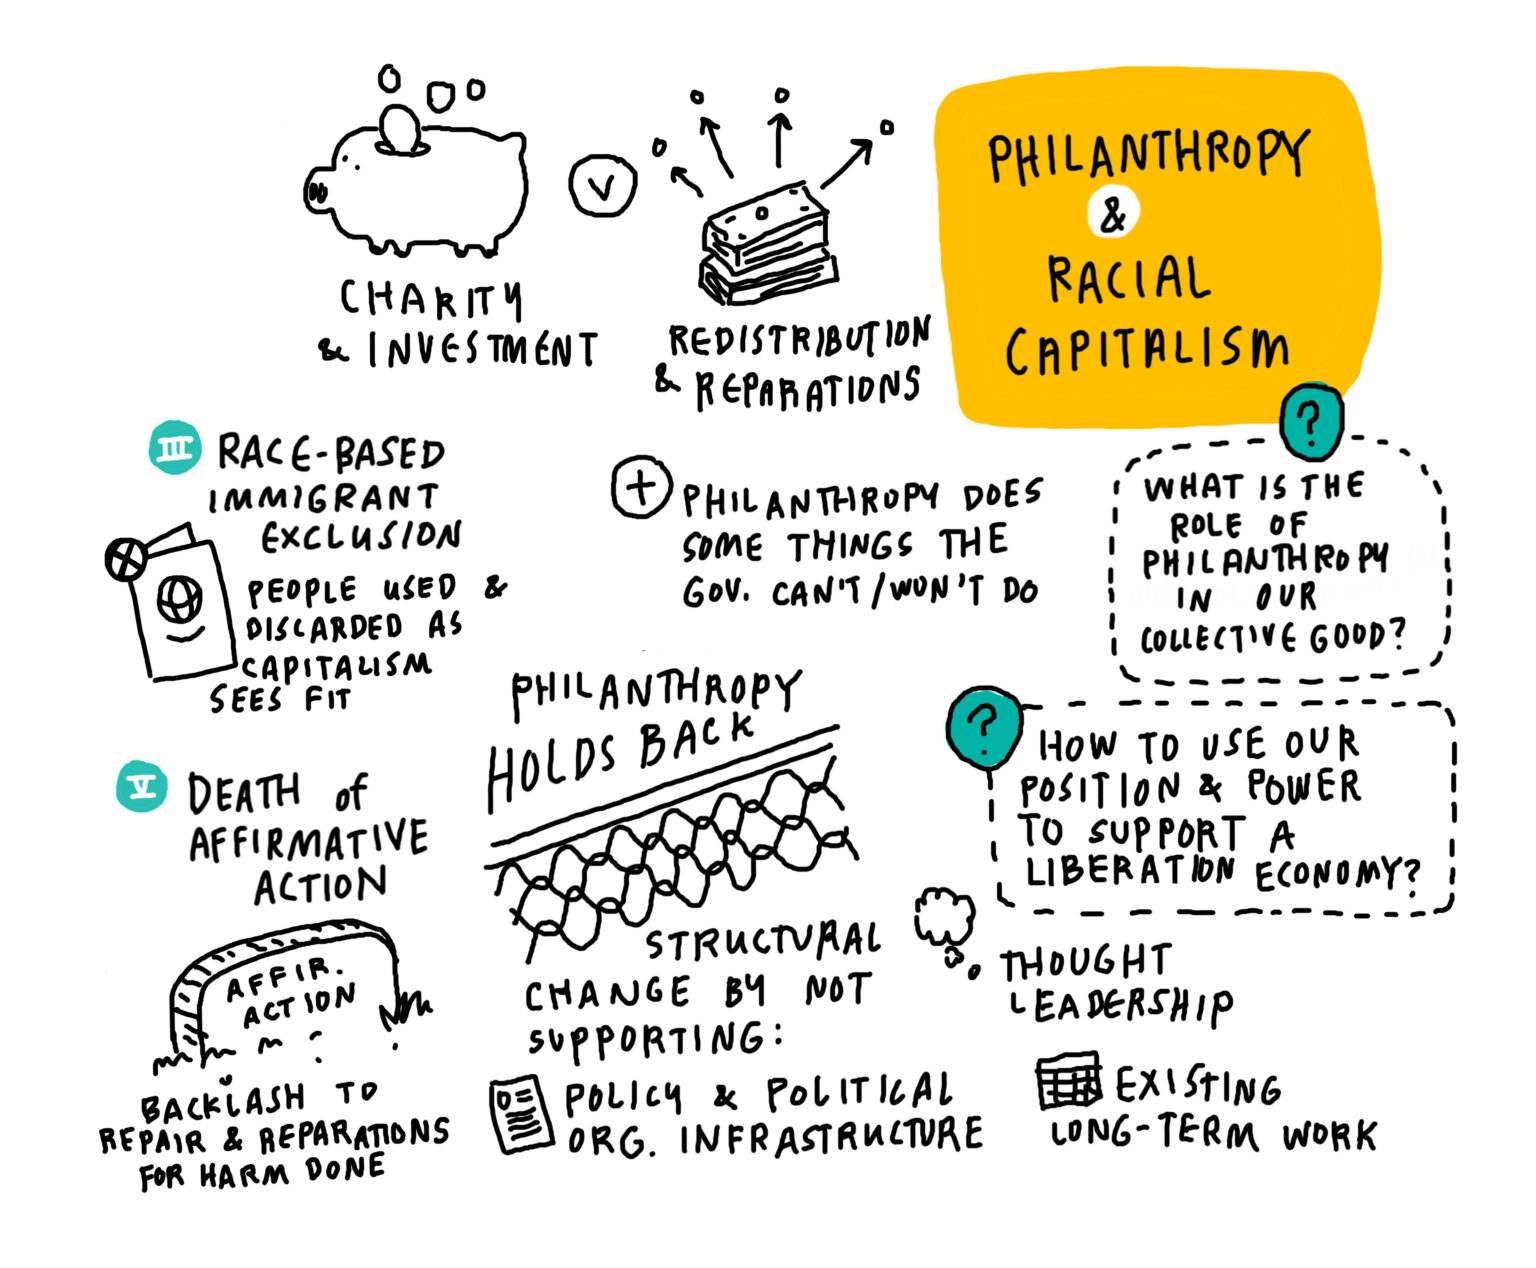 PHILANTHROPY
&
RACIAL
CAPITALISM
CHARITY
& INVESTMENT
V
REDISTRIBUTION
& REPARATIONS
III
RACE-BASED
IMMIGRANT
EXCLUSION
PEOPLE USED &
DISCARDED AS
CAPITALISM
SEES FIT
+ PHILANTHROPY DOES
SOME THINGS THE
GOV. CAN'T/WON'T DO
?
WHAT IS THE
ROLE OF
PHILANTHROPY
IN OUR
COLLECTIVE GOOD?
?
HOW TO USE OUR
POSITION & POWER
TO SUPPORT A
LIBERATION ECONOMY?
V
DEATH of
AFFIRMATIVE
ACTION
AFFIR.
ACTION
BACKLASH TO
REPAIR & REPARATIONS
FOR HARM DONE
PHILANTHROPY
HOLDS BACK
STRUCTURAL
CHANGE BY NOT
SUPPORTING:
POLICY & POLITICAL
ORG. INFRASTRUCTURE
THOUGHT
LEADERSHIP
EXISTING
LONG-TERM WORK